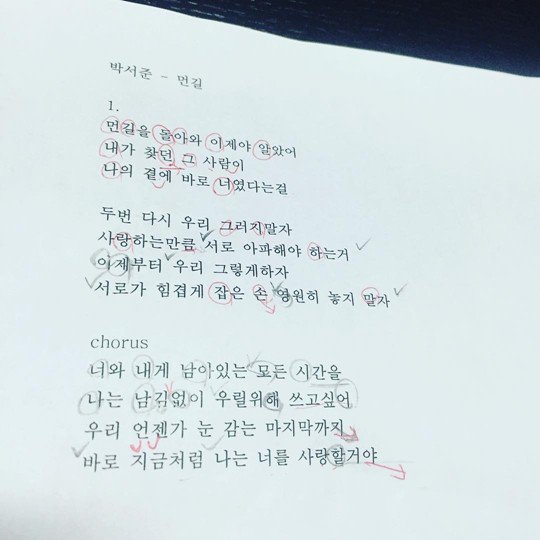 박서준 - 먼길
1.
먼길을 돌아와 이제야 알았어
내가 찾던 그 사람이
나의 곁에 바로 너였다는걸
두번 다시 우리 그러지말자
사랑하는만큼 서로 아파해야 하는거
이제부터 우리 그렇게하자
서로가 힘겹게 잡은 손 영원히 놓지 말자
chorus
너와 내게 남아있는 모든 시간을
나는 남김없이 우릴위해 쓰고싶어
우리 언젠가 눈 감는 마지막까지
바로 지금처럼 나는 너를 사랑할거야